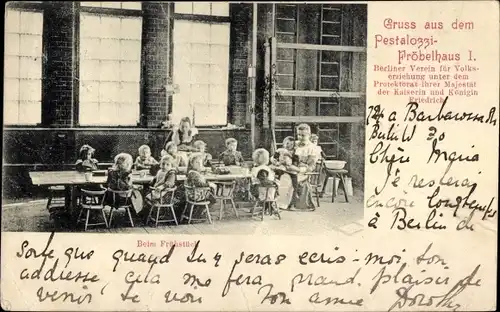 Gruss aus dem
Pestalozzi-
Fröbelhaus I.
Berliner Verein für Volks-
erziehung unter dem
Protektorat Ihrer Majestät
der Kaiserin und Königin
Friedrich
74 a Barbarossa
Berlin W 30
Chère Maria
Je resterai
encore longtemps
à Berlin de
Beim Frühstück
Sorte que quand tu y seras écris-moi ton
addresse, ça me fera grand plaisir de
venir te voir Ton amie Dorothy